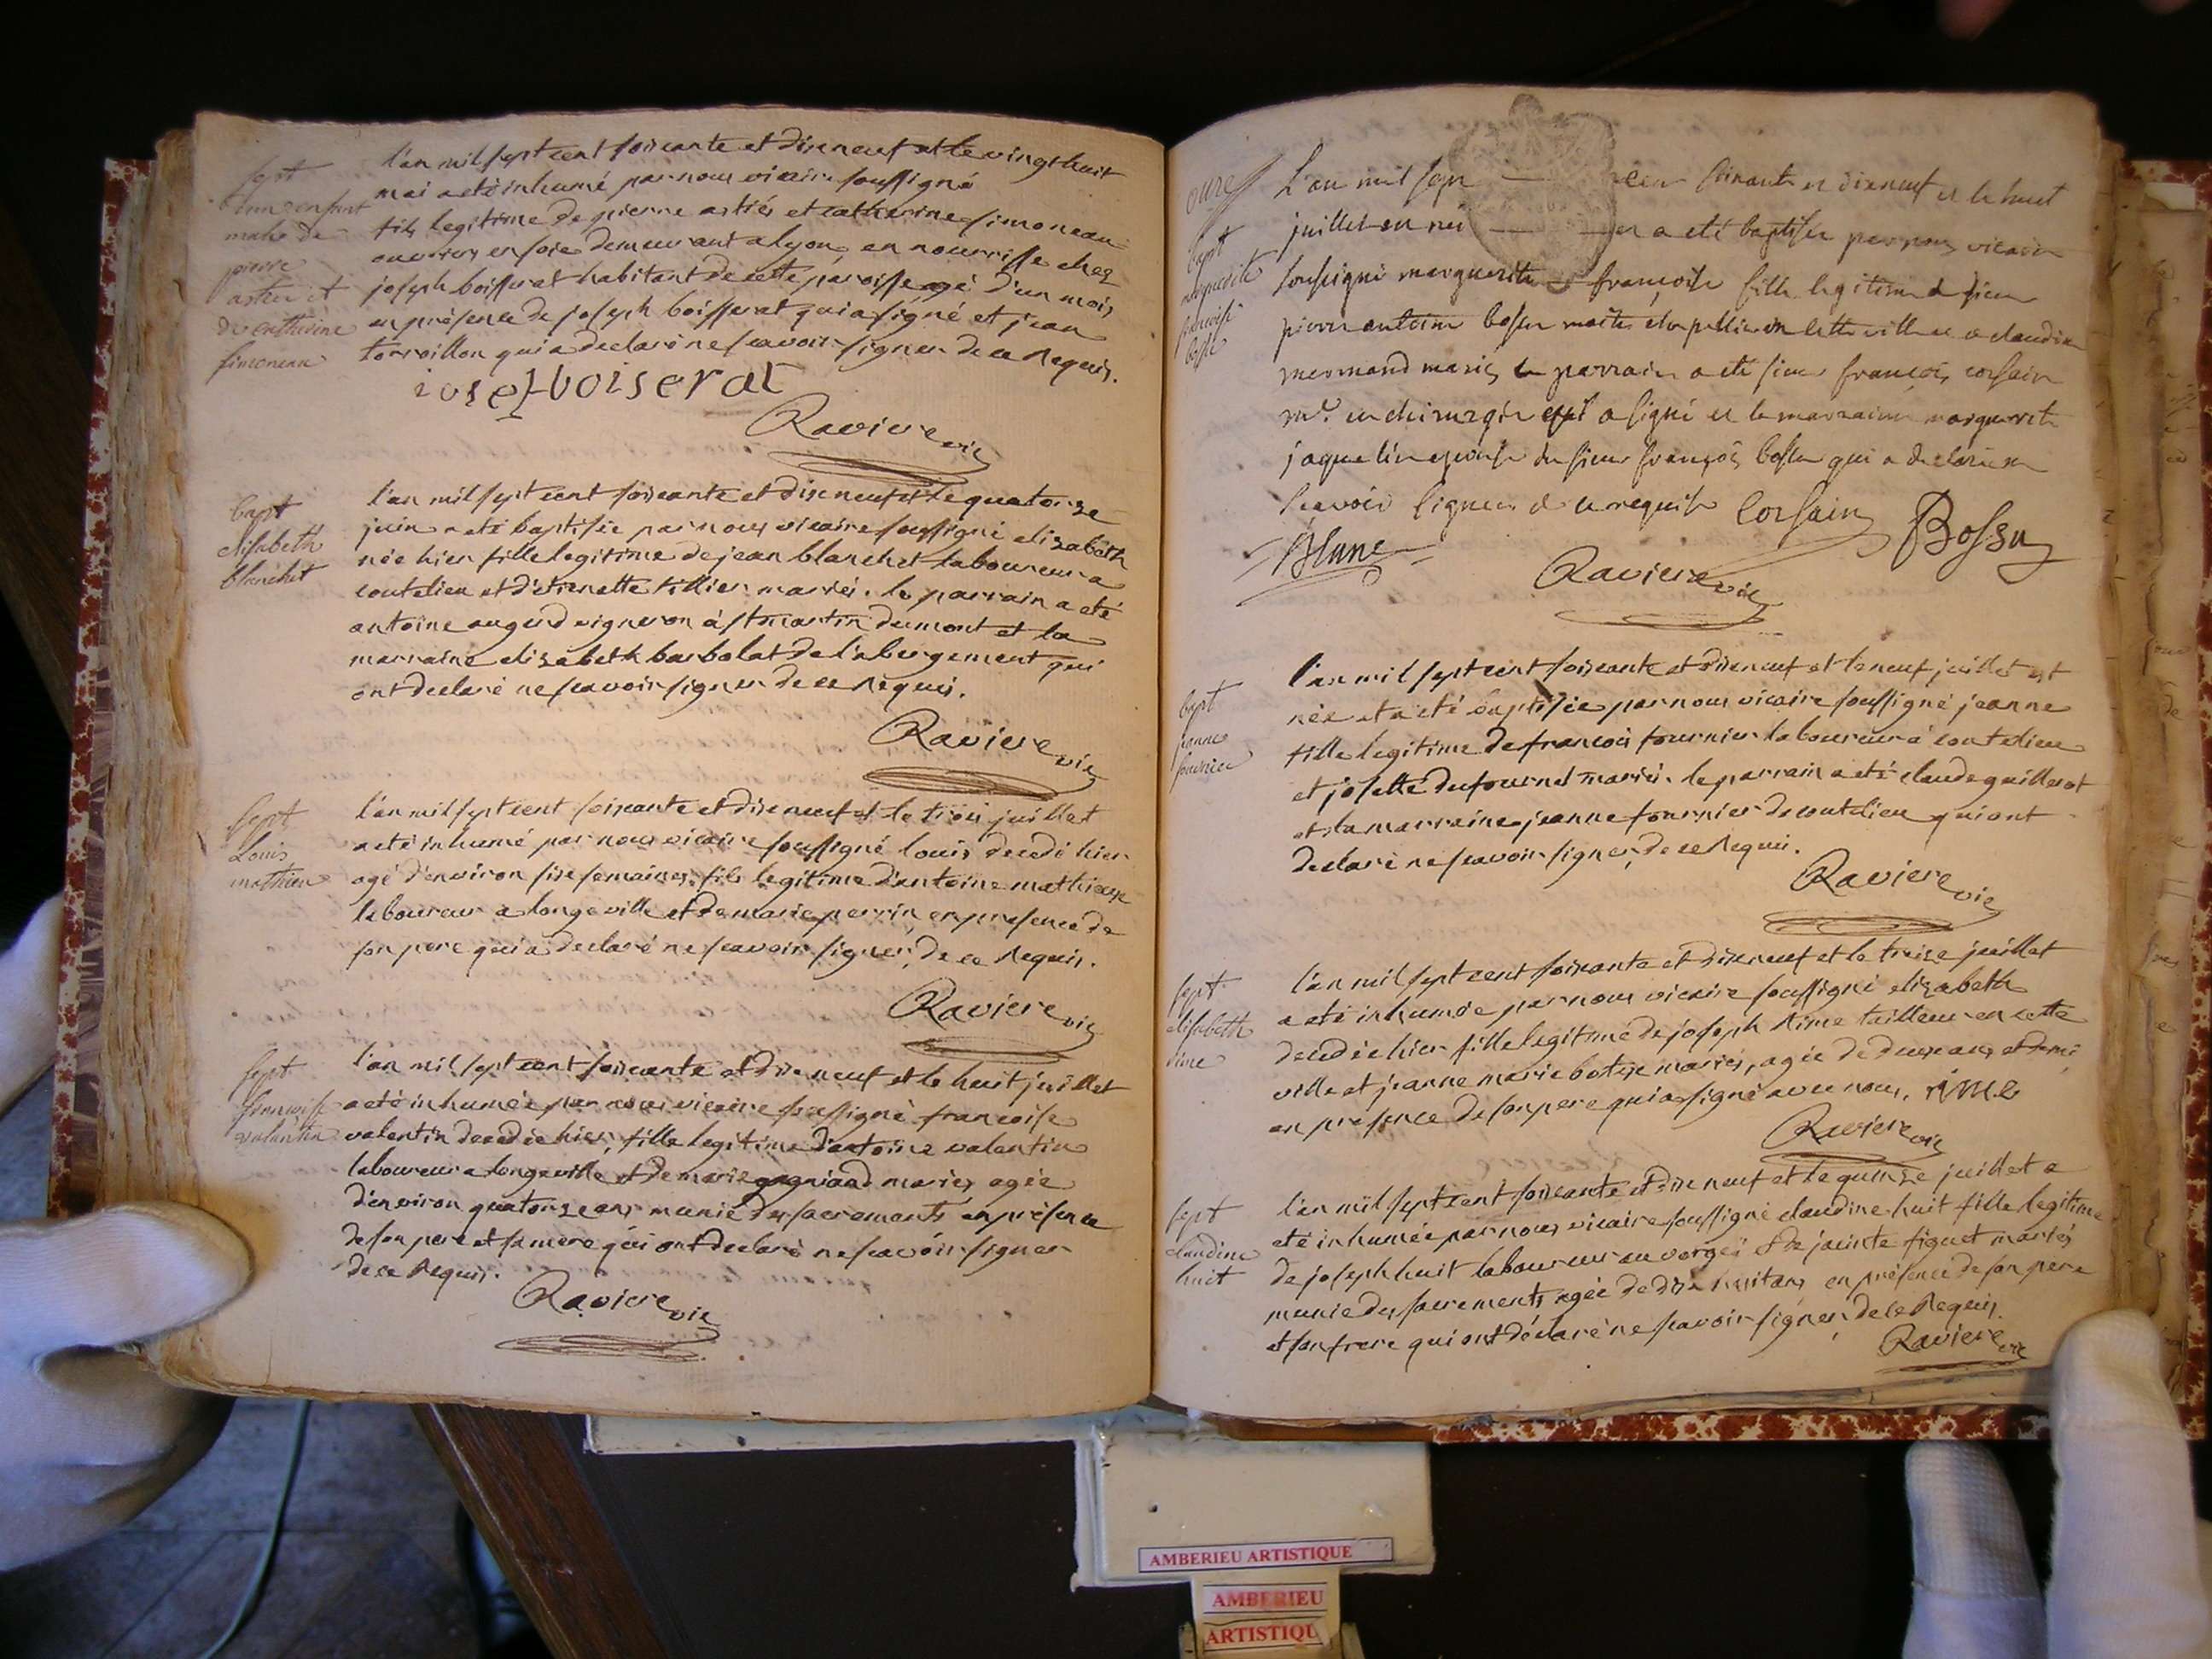 sept
d'un enfant
male de
pierre
astier et
de catherine
simoneau
l'an mil sept cent soixante et dixneuf et le vingt huit
mai a eté inhumé par nous vicaire soussigné
fils legitime de pierre astiés et catherine simoneau
ouvriers en soie demeurant a lyon, en nourrisse chez
joseph boisserat habitant de cette paroisse agé d'un mois
en présence de joseph boisserat qui a signé et jean
torvoillon qui a declaré ne scavoir signer de ce Requis.
iosef boiserat
Raviere vic
bapt
elisabeth
blanchet
l'an mil sept cent soixante et dixneuf et le quatorze
juin a eté baptisée par nous vicaire soussigné elizabeth
née hier fille legitime de jean blanchet laboureur a
coutelieu et d'etienette tillier mariés. le parrain a eté
antoine augerd vigneron à st martin du mont et la
marraine elizabeth barbolat de l'abergement qui
ont declaré ne scavoir signer de ce Requis.
Raviere vic
sept
Louis
mathieu
l'an mil sept cent soixante et dixneuf et le trois juillet
a eté inhumé par nous vicaire soussigné louis decedé hier
agé d'environ six semaines, fils legitime d'antoine mathieu
laboureur a longeville et de marie perrin, en presence de
son pere qui a declaré ne scavoir signer, de ce Requis.
Raviere vic
sept
francoise
valentin
l'an mil sept cent soixante et dix neuf et le huit juillet
a eté inhumée par nous vicaire soussigné francoise
valentin decedée hier, fille legitime d'antoine valentin
laboureur a longeville et de marie gagniard mariés, agée
d'environ quatorze ans munie des sacrements en présence
de son pere et sa mere qui ont declaré ne scavoir signer
de ce Requis.
Raviere vic
bapt
marguerite
françoise
bossu
L'an mil sept cent soixante et dixneuf et le huit
juillet est née et a eté baptisée par nous vicaire
soussigné marguerite françoise fille legitime de sieur
pierre antoine bossu maitre chapellier en cette ville et de claudine
mermand mariés le parrain a eté sieur françois corsain
me. en chirurgie qui a signé et la marraine marguerite
jaqueline epouse du sieur françois bossu qui a declaré ne
scavoir signer de ce requise Corsain Bossu
Blanc
Raviere vic
bapt
jeanne
fournier
l'an mil sept cent soixante et dixneuf et le neuf juillet est
née et a eté baptisée par nous vicaire soussigné jeanne
fille legitime de francois fournier laboureur à coutelieu
et josette dufournel mariés. le parrain a eté claude guillerot
et la marraine jeanne fournier de coutelieu qui ont
declaré ne scavoir signer, de ce Requis.
Raviere vic
sept
elisabeth
rime
l'an mil sept cent soixante et dixneuf et le treize juillet
a eté inhumée par nous vicaire soussigné elizabeth
decedée hier fille legitime de joseph Rime tailleur en cette
ville et jeanne marie botex mariés, agée de deux ans et demi
en presence de son pere qui a signé avec nous. rime
Raviere vic
sept
claudine
huit
l'an mil sept cent soixante et dix neuf et le quinze juillet a
eté inhumée par nous vicaire soussigné claudine huit fille legitime
de joseph huit laboureur au vorgey et de jacinte figuet mariés
munie des sacrements agée de dix huit ans en présence de son pere
et son frere qui ont déclaré ne scavoir signer, de ce Requis.
Raviere vic
AMBERIEU ARTISTIQUE
AMBERIEU
ARTISTIQU